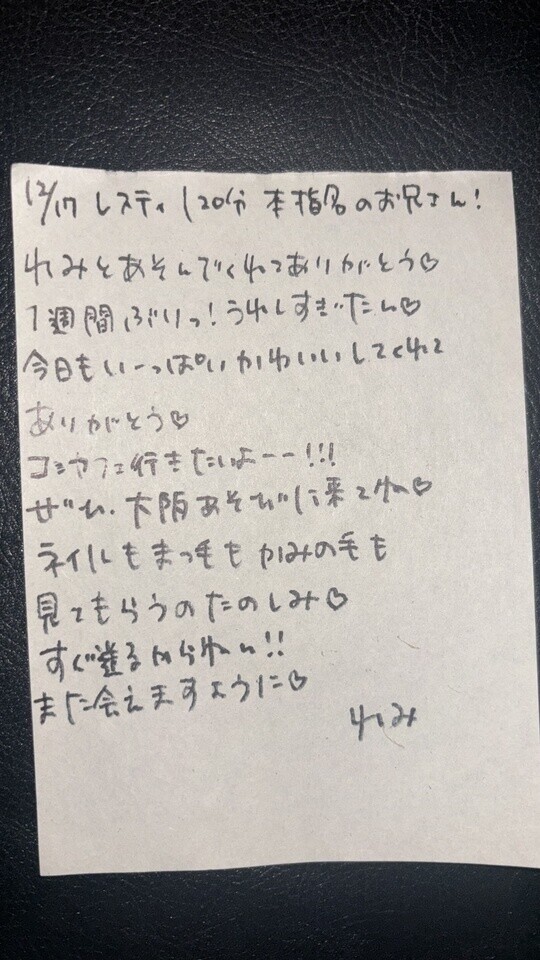 12/17 レスティ 120分 本指名のお兄さん！
れみとあそんでくれてありがとう♡
1週間ぶりっ！うれしすぎたん♡
今日もいーっぱいかわいいしてくれて
ありがとう♡
コンカフェ行きたいよーー!!!
ぜひ、大阪あそびに来てね♡
ネイルもまつ毛もかみの毛も
見てもらうのたのしみ♡
すぐ送るからねん!!
また会えますように♡
れみ